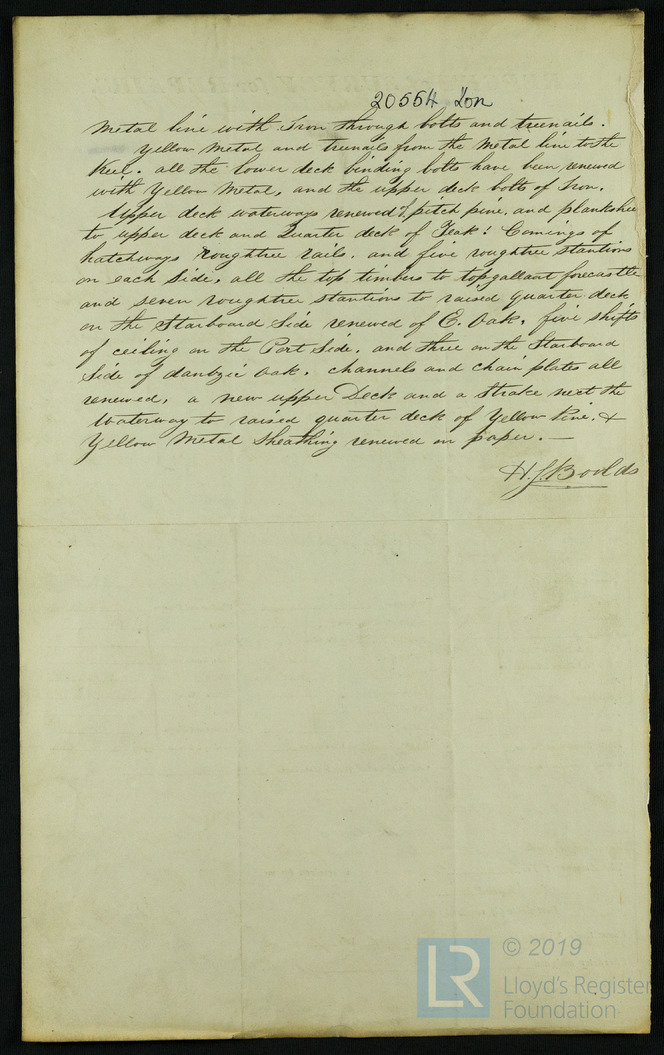 20554 Lon
Metal line with Iron through bolts and treenails.
Yellow Metal and treenails from the Metal line to the
Keel. all the lower deck binding bolts have been renewed
with Yellow Metal, and the upper deck bolts of Iron.
Upper deck waterways renewed of pitch pine, and planksheer
to upper deck and Quarter deck of Teak: Comings of
hatchways roughtree rails, and five roughtree stantions
on each side, all the top timbers to topgallant forecastle
and seven roughtree stantions to raised quarter deck
on the Starboard Side renewed of E. Oak, five shifts
of ceiling on the Port Side, and three on the Starboard
Side of dantzic Oak, channels and chain plates all
renewed, a new upper Deck and a Strake next the
Waterway to raised quarter deck of Yellow Pine, &
Yellow Metal Sheathing renewed on paper. —
H. J. Boolds
LR
© 2019
Lloyd's Register
Foundation